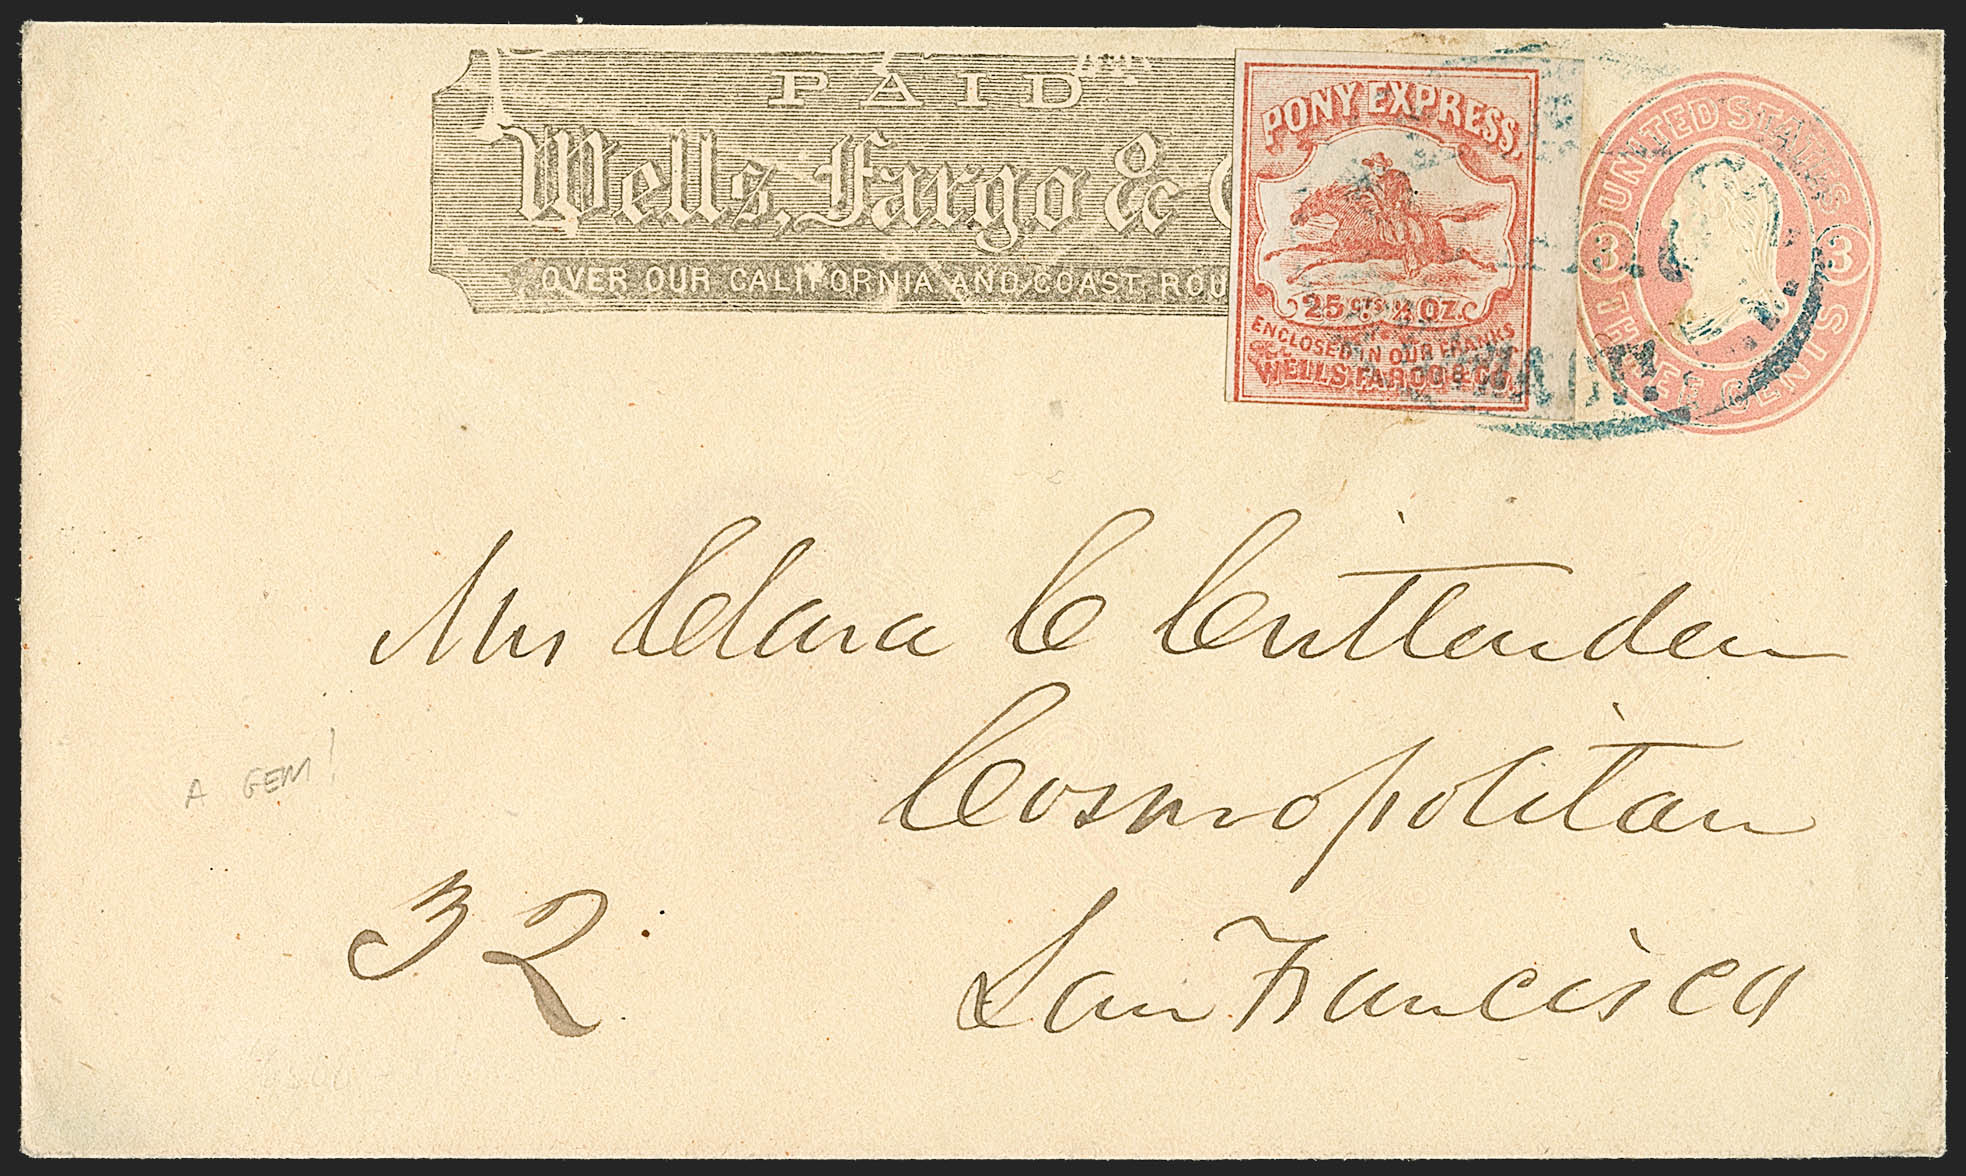 PAID
Wells, Fargo & C
OVER OUR CALIFORNIA AND COAST ROU
PONY EXPRESS.
25 CTS. ½ OZ.
ENCLOSED IN OUR FRANKS
WELLS, FARGO & CO.
UNITED STATES
3 3
THREE CENTS
Mrs Clara C Crittenden
Cosmopolitan
A GEM!
32
San Francisco